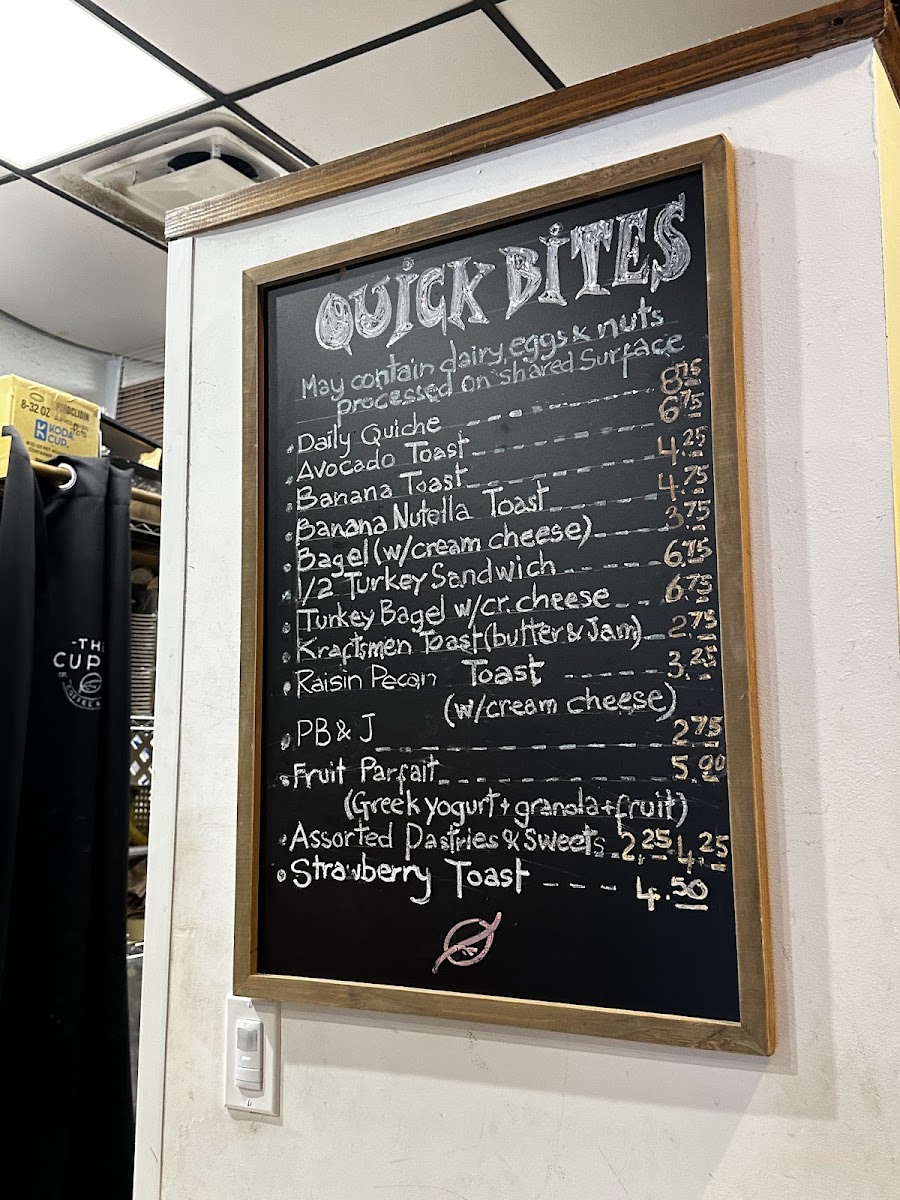 QUICK BITES
May contain dairy, eggs & nuts
processed on shared Surface
Daily Quiche 8.75
Avocado Toast 6.75
Banana Toast 4.25
Banana Nutella Toast 4.75
Bagel (w/cream cheese) 3.75
1/2 Turkey Sandwich 6.75
Turkey Bagel w/cr. cheese 6.75
Kraftsmen Toast (butter & Jam) 2.75
Raisin Pecan Toast 3.25
(w/cream cheese)
PB & J 2.75
Fruit Parfait 5.00
(Greek yogurt + granola + fruit)
Assorted Pastries & Sweets 2.25-4.25
Strawberry Toast 4.50
8-32 OZ
KODA
CUP
THE
CUP